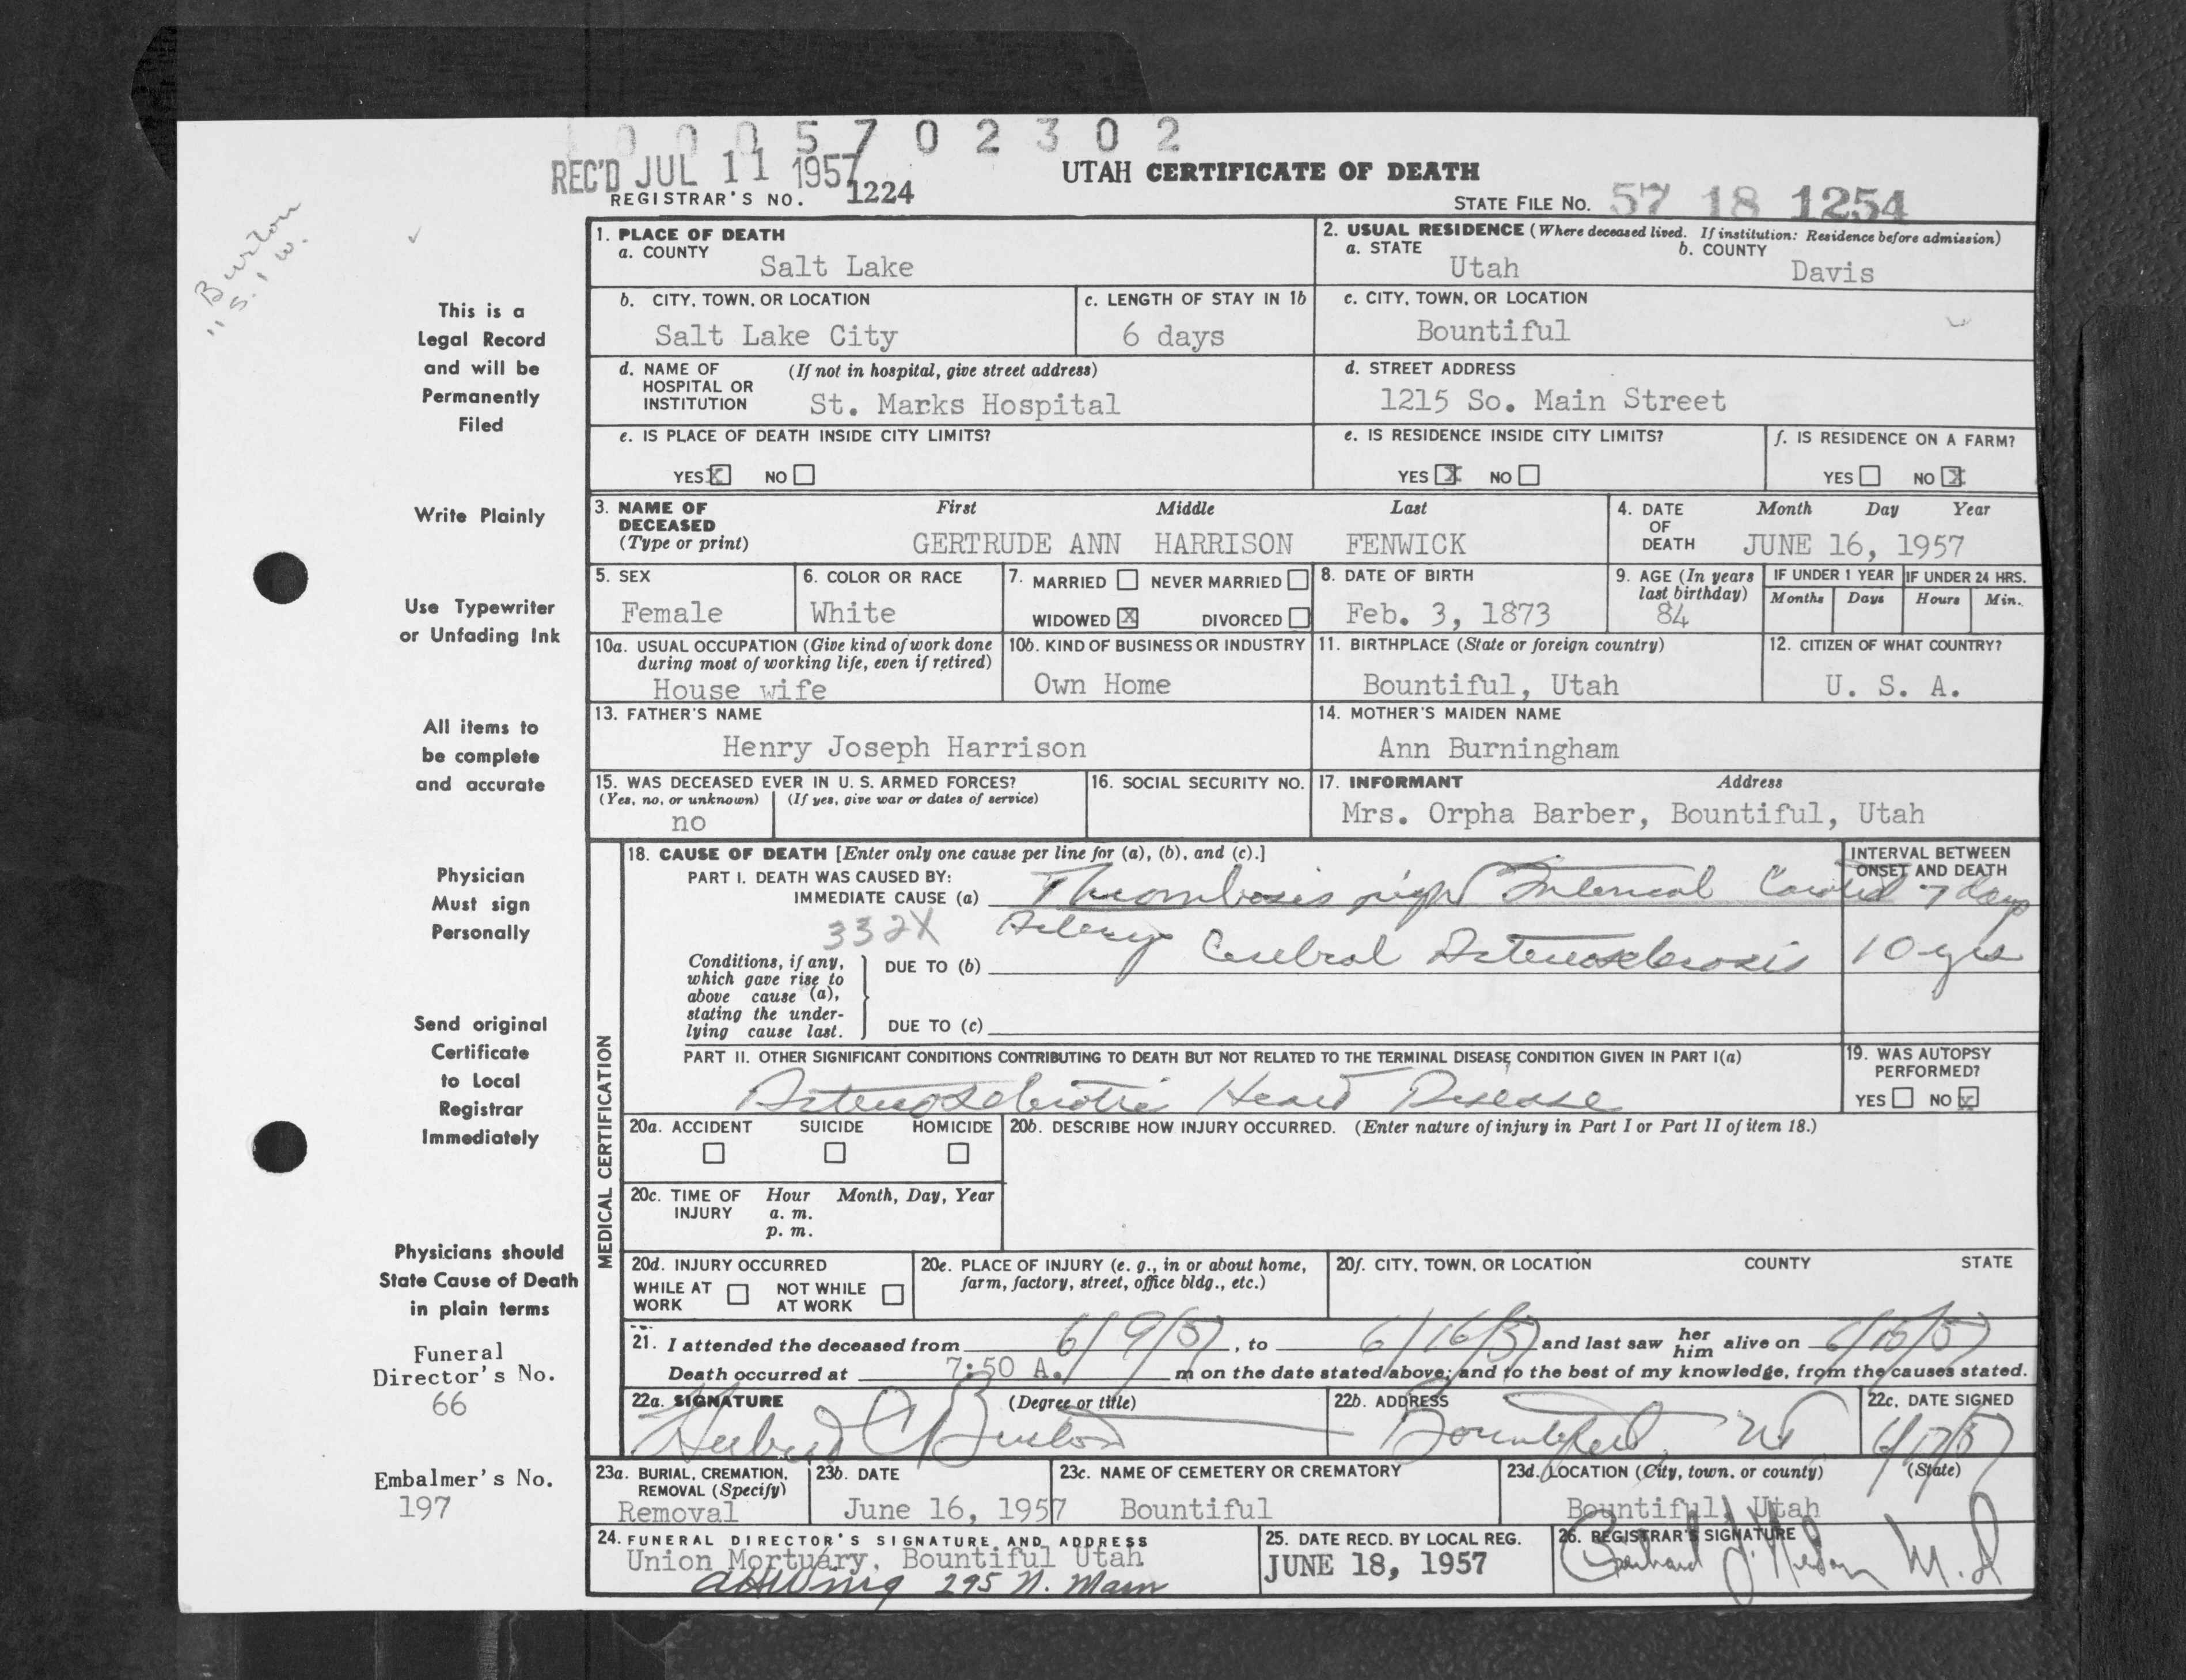 1 0 0 0 5 7 0 2 3 0 2
REC'D JUL 11 1957
UTAH CERTIFICATE OF DEATH
REGISTRAR'S NO. 1224
STATE FILE No. 57 18 1254
Burton
" S. I W.
1. PLACE OF DEATH
a. COUNTY
Salt Lake
2. USUAL RESIDENCE (Where deceased lived. If institution: Residence before admission)
a. STATE
Utah
b. COUNTY
Davis
b. CITY, TOWN, OR LOCATION
Salt Lake City
c. LENGTH OF STAY IN 1b
6 days
c. CITY, TOWN, OR LOCATION
Bountiful
d. NAME OF HOSPITAL OR INSTITUTION
(If not in hospital, give street address)
St. Marks Hospital
d. STREET ADDRESS
1215 So. Main Street
e. IS PLACE OF DEATH INSIDE CITY LIMITS?
YES X NO
e. IS RESIDENCE INSIDE CITY LIMITS?
YES X NO
f. IS RESIDENCE ON A FARM?
YES NO X
3. NAME OF DECEASED (Type or print)
First Middle Last
GERTRUDE ANN HARRISON FENWICK
4. DATE OF DEATH
Month Day Year
JUNE 16, 1957
5. SEX
Female
6. COLOR OR RACE
White
7. MARRIED NEVER MARRIED
WIDOWED X DIVORCED
8. DATE OF BIRTH
Feb. 3, 1873
9. AGE (In years last birthday)
84
IF UNDER 1 YEAR
Months Days
IF UNDER 24 HRS.
Hours Min.
10a. USUAL OCCUPATION (Give kind of work done during most of working life, even if retired)
House wife
10b. KIND OF BUSINESS OR INDUSTRY
Own Home
11. BIRTHPLACE (State or foreign country)
Bountiful, Utah
12. CITIZEN OF WHAT COUNTRY?
U. S. A.
13. FATHER'S NAME
Henry Joseph Harrison
14. MOTHER'S MAIDEN NAME
Ann Burningham
15. WAS DECEASED EVER IN U. S. ARMED FORCES?
(Yes, no, or unknown) (If yes, give war or dates of service)
no
16. SOCIAL SECURITY NO.
17. INFORMANT Address
Mrs. Orpha Barber, Bountiful, Utah
MEDICAL CERTIFICATION
18. CAUSE OF DEATH [Enter only one cause per line for (a), (b), and (c).]
INTERVAL BETWEEN ONSET AND DEATH
PART I. DEATH WAS CAUSED BY:
IMMEDIATE CAUSE (a) Thrombosis right Internal Carotid 7 days
332X Artery
Conditions, if any, which gave rise to above cause (a), stating the underlying cause last.
DUE TO (b) Cerebral Arteriosclerosis 10 yrs
DUE TO (c)
PART II. OTHER SIGNIFICANT CONDITIONS CONTRIBUTING TO DEATH BUT NOT RELATED TO THE TERMINAL DISEASE CONDITION GIVEN IN PART I(a)
Arteriosclerotic Heart Disease
19. WAS AUTOPSY PERFORMED?
YES NO X
20a. ACCIDENT SUICIDE HOMICIDE
20b. DESCRIBE HOW INJURY OCCURRED. (Enter nature of injury in Part I or Part II of item 18.)
20c. TIME OF INJURY
Hour Month, Day, Year
a. m.
p. m.
20d. INJURY OCCURRED
WHILE AT WORK NOT WHILE AT WORK
20e. PLACE OF INJURY (e. g., in or about home, farm, factory, street, office bldg., etc.)
20f. CITY, TOWN, OR LOCATION COUNTY STATE
21. I attended the deceased from 6/9/57, to 6/16/57 and last saw her him alive on 6/16/57
Death occurred at 7:50 A. m on the date stated above; and to the best of my knowledge, from the causes stated.
22a. SIGNATURE (Degree or title)
Herbert C Burton
22b. ADDRESS
Bountiful, Ut
22c. DATE SIGNED
6/17/57
23a. BURIAL, CREMATION, REMOVAL (Specify)
Removal
23b. DATE
June 16, 1957
23c. NAME OF CEMETERY OR CREMATORY
Bountiful
23d. LOCATION (City, town, or county) (State)
Bountiful, Utah
24. FUNERAL DIRECTOR'S SIGNATURE AND ADDRESS
Union Mortuary, Bountiful Utah
295 N. Main
25. DATE RECD. BY LOCAL REG.
JUNE 18, 1957
26. REGISTRAR'S SIGNATURE
M.D
This is a
Legal Record
and will be
Permanently
Filed
Write Plainly
Use Typewriter
or Unfading Ink
All items to
be complete
and accurate
Physician
Must sign
Personally
Send original
Certificate
to Local
Registrar
Immediately
Physicians should
State Cause of Death
in plain terms
Funeral
Director's No.
66
Embalmer's No.
197